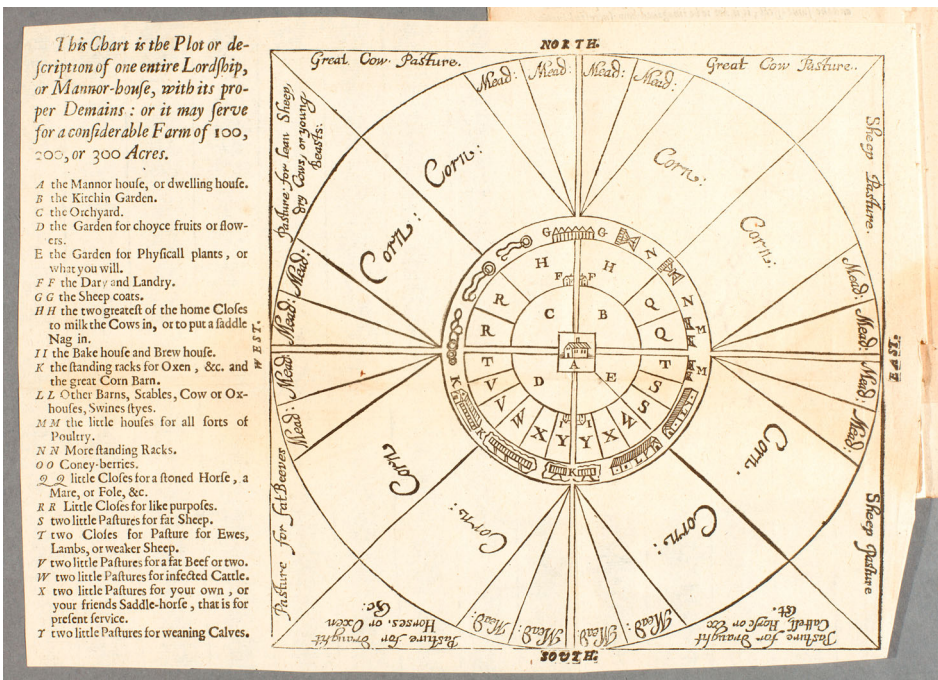 This Chart is the Plot or de-
ſcription of one entire Lordſhip,
or Mannor-houſe, with its pro-
per Demains : or it may ſerve
for a conſiderable Farm of 100,
200, or 300 Acres.
A the Mannor houſe, or dwelling houſe.
B the Kitchin Garden.
C the Orchyard.
D the Garden for choyce fruits or flow-
ers.
E the Garden for Phyſicall plants, or
what you will.
F F the Dary and Landry.
G G the Sheep coats.
H H the two greateſt of the home Cloſes
to milk the Cows in, or to put a ſaddle
Nag in.
I I the Bake houſe and Brew houſe.
K the ſtanding racks for Oxen, &c. and
the great Corn Barn.
L L Other Barns, Stables, Cow or Ox-
houſes, Swines ſtyes.
M M the little houſes for all ſorts of
Poultry.
N N More ſtanding Racks.
O O Coney-berries.
Q Q little Cloſes for a ſtoned Horſe, a
Mare, or Fole, &c.
R R Little Cloſes for like purpoſes.
S two little Paſtures for fat Sheep.
T two Cloſes for Paſture for Ewes,
Lambs, or weaker Sheep.
V two little Paſtures for a fat Beef or two.
W two little Paſtures for infected Cattle.
X two little Paſtures for your own, or
your friends Saddle-horſe, that is for
preſent ſervice.
Y two little Paſtures for weaning Calves.
NORTH.
Great Cow Paſture.
Mead:
Mead:
Mead:
Mead:
Great Cow Paſture.
Paſture for lean Sheep,
dry Cows, or young
Beaſts:
Sheep Paſture.
Corn:
Corn:
Corn:
Corn:
Mead:
Mead:
Mead:
Mead:
G G
N
H H
F F
R Q N
C B
R Q M
WEST.
EAST
A
T T M
K D E
V S
V S
W W
X Y Y X
I I
K K
L L
Mead:
Mead:
Mead:
Mead:
Corn
Corn:
Corn:
Corn.
Paſture for fat Beeves
Sheep Paſture
Mead:
Mead:
Mead:
Mead:
Paſture for Draught
Horſes. or Oxen
&c:
Paſture for Draught
Cattell, Horſe or Ox
&c.
SOUTH: